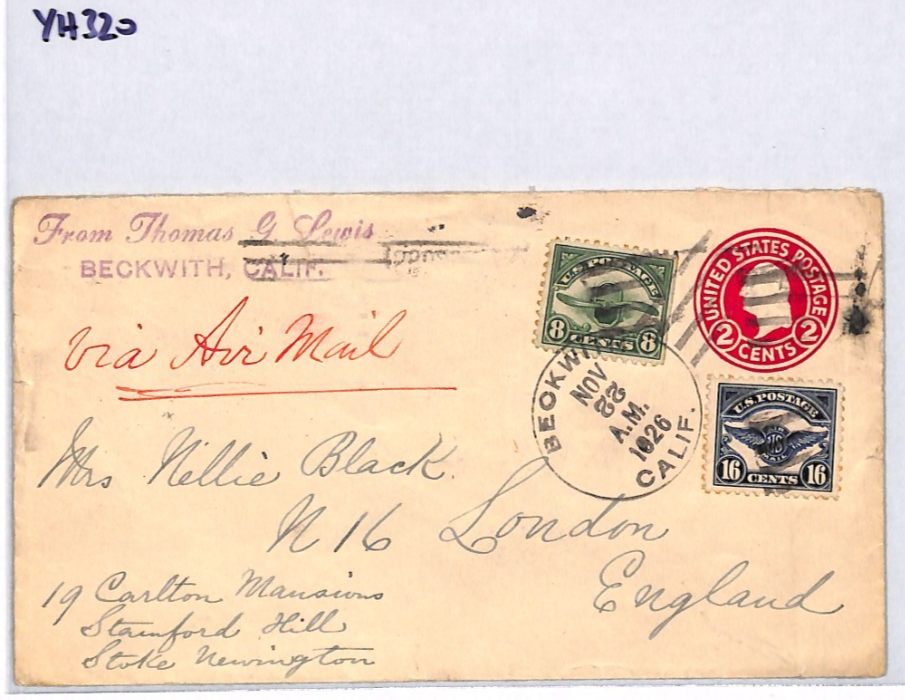 YH320
From Thomas G Lewis
BECKWITH, CALIF.
via Air Mail
U.S. POSTAGE
8 CENTS 8
UNITED STATES POSTAGE
2 CENTS 2
BECKWI
NOV
22
A.M.
1926
CALIF.
U.S. POSTAGE
AIR
US
MAIL
16 CENTS 16
Mrs Nellie Black.
N 16 London
England
19 Carlton Mansions
Stamford Hill
Stoke Newington